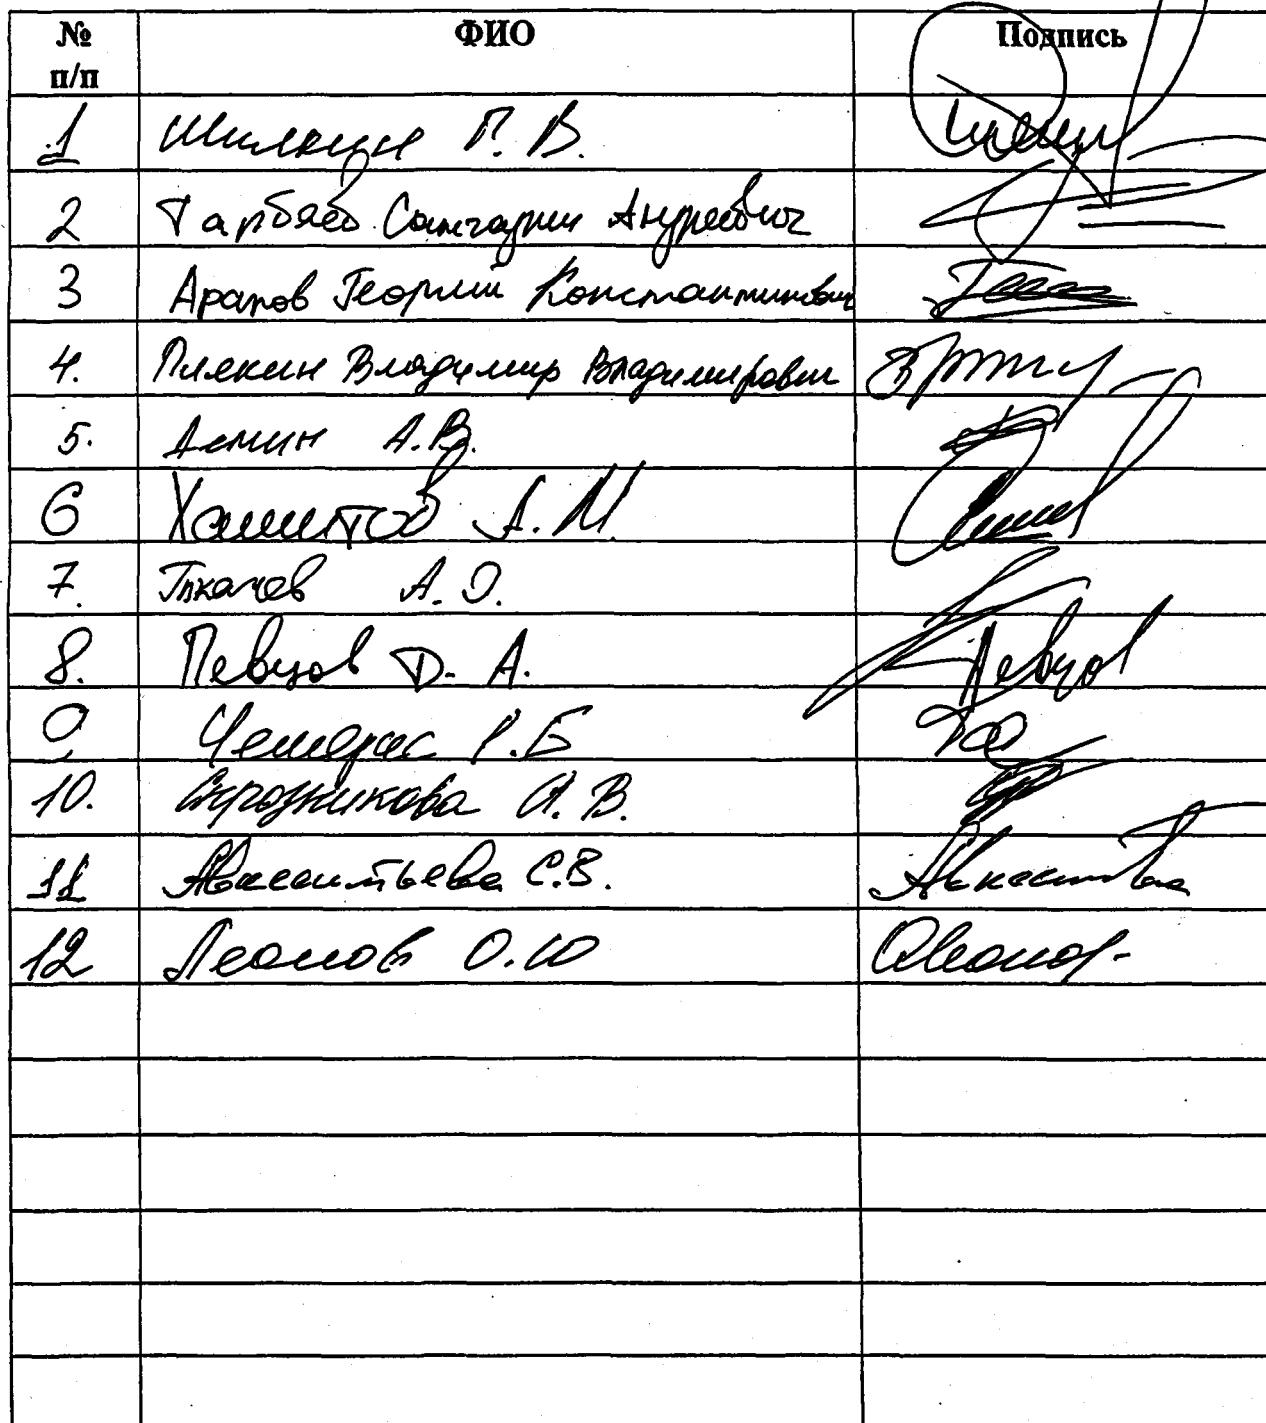 № п/п ФИО Подпись
1 Шилкин Г. В.
2 Тарбаев Санчарии Андреевич
3 Арапов Георгий Константинович
4. Плякин Владимир Владимирович
5. Демин А.В.
6 Хамитов А. М.
7. Ткачев А. О.
8. Певцов Д. А. Певцов
9 Чемерис Р. Б
10. А. В.
11 Авксентьева С.В.
12 Леонов О. Ю